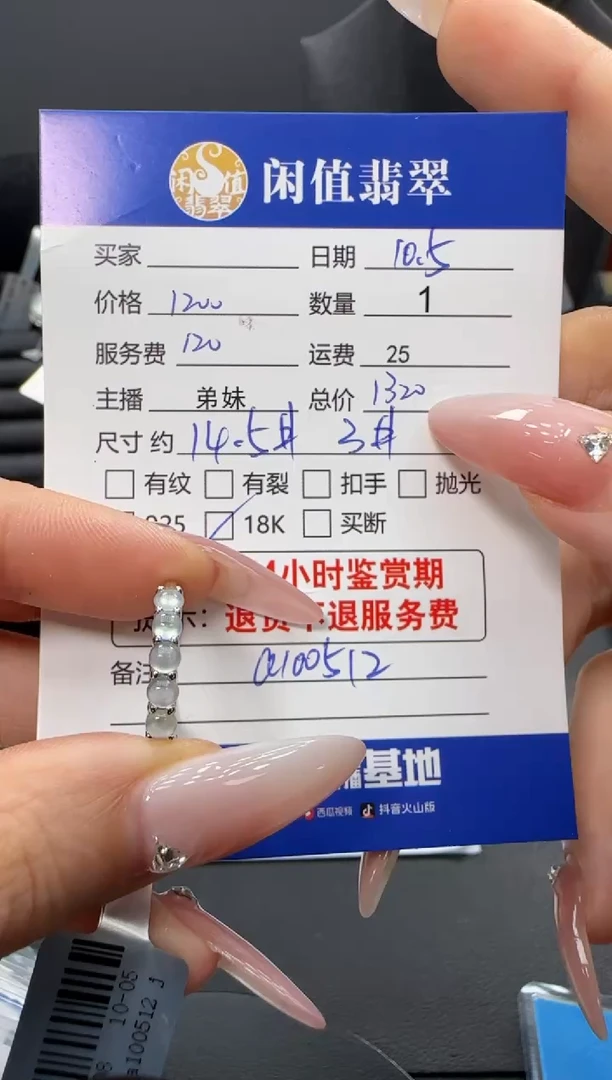 闲值翡翠
闲值翡翠
买家 日期 10.5
价格 1200 数量 1
服务费 120 运费 25
主播 弟妹 总价 1320
尺寸 约 14.5# 3#
有纹 有裂 扣手 抛光
925 18K 买断
4小时鉴赏期
示: 退货不退服务费
备注 a100512
播基地
西瓜视频 抖音火山版
10-05
a100512 J